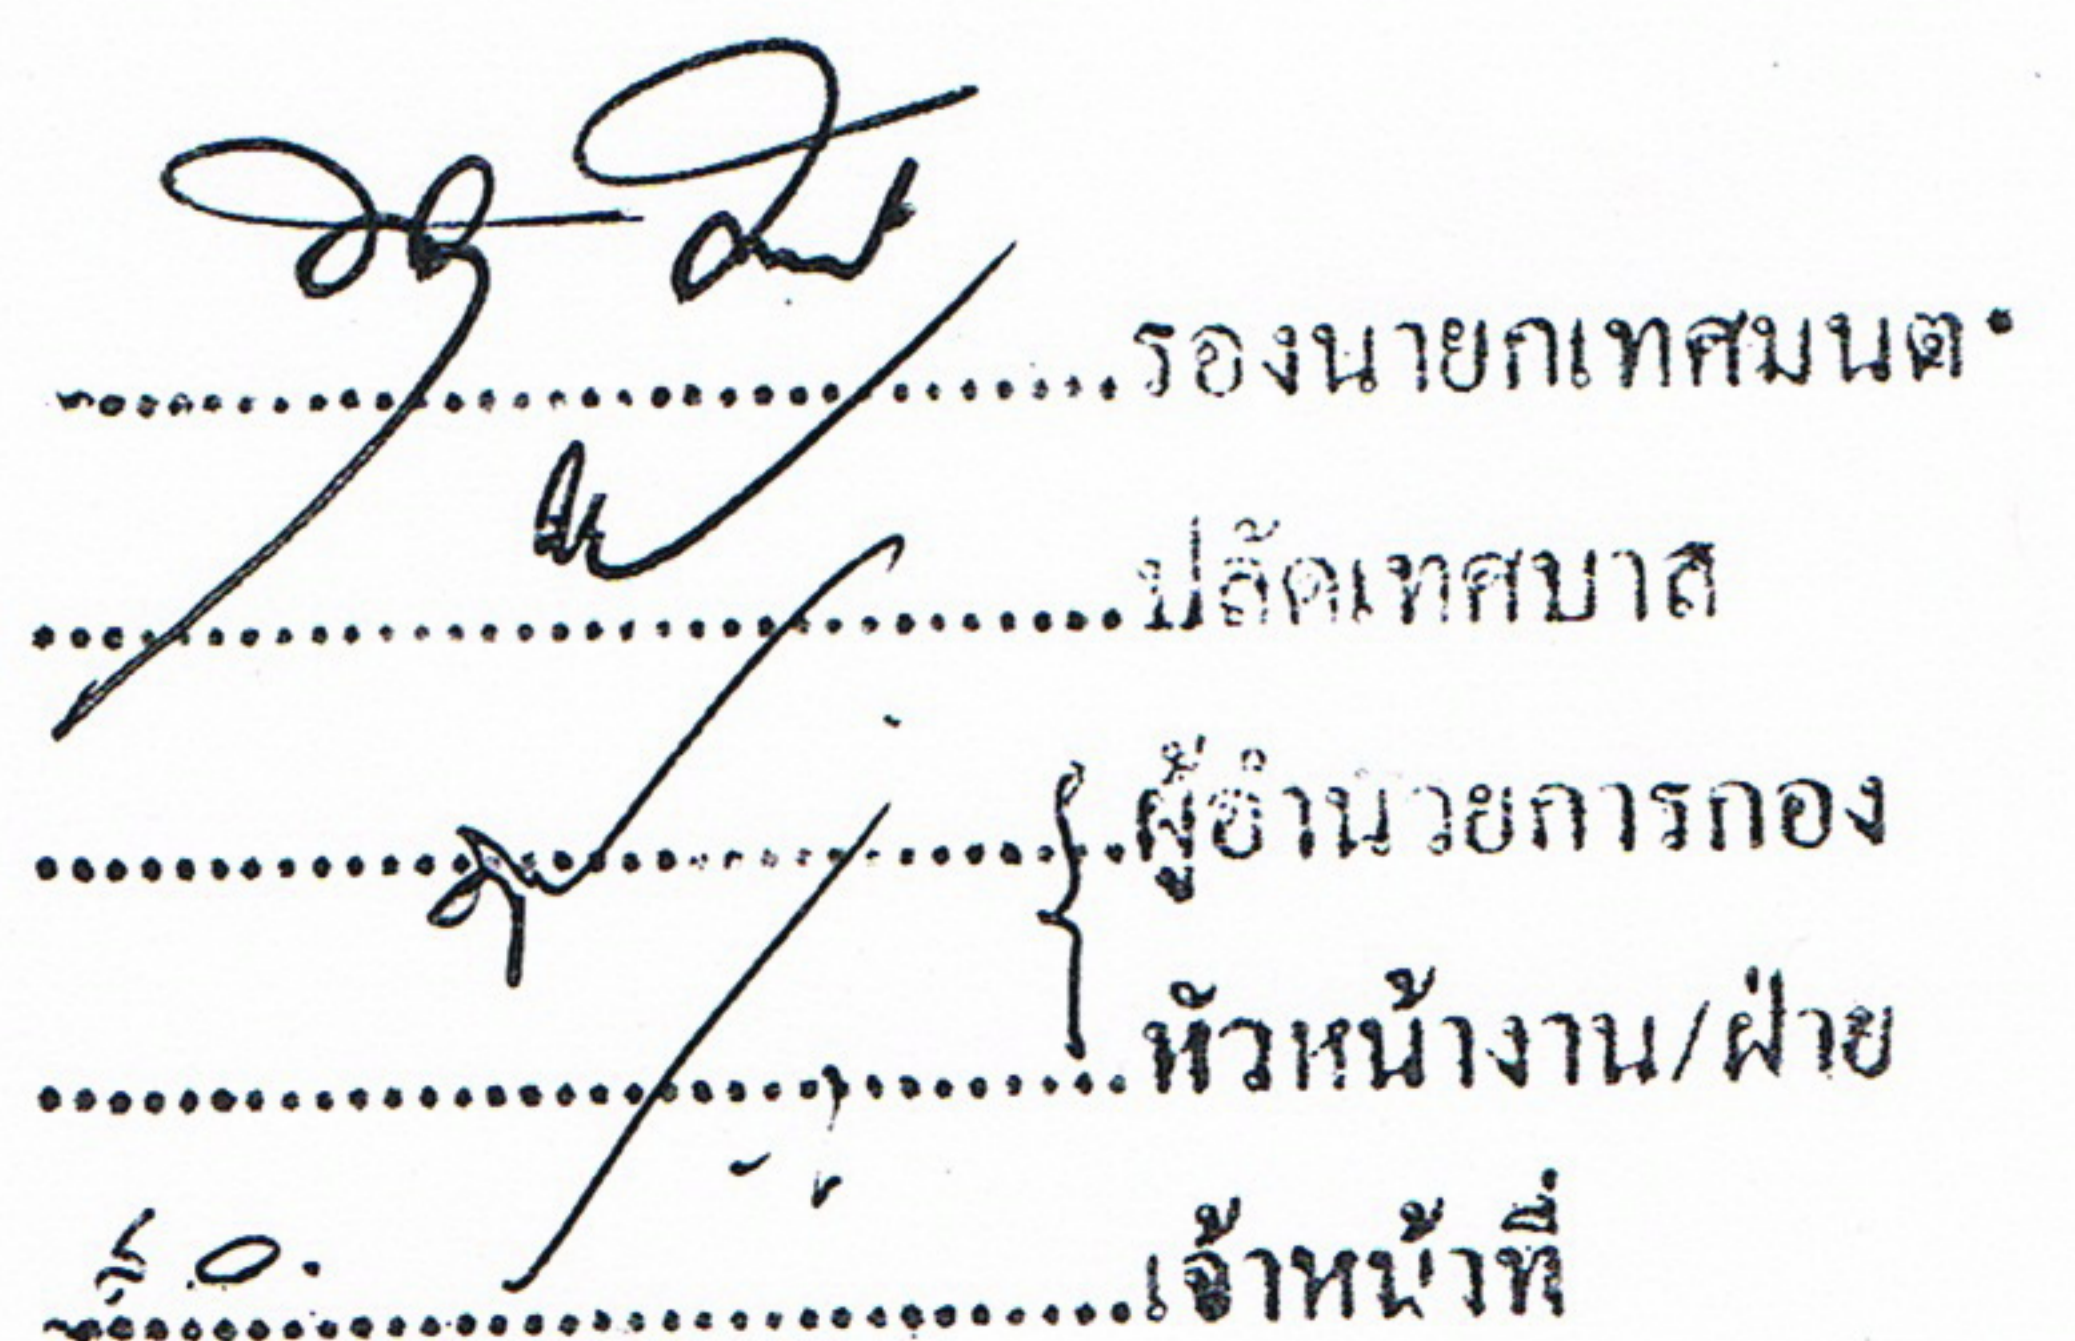 ....................รองนายกเทศมนต
....................ปลัดเทศบาล
....................ผู้อำนวยการกอง
....................หัวหน้างาน/ฝ่าย
....................เจ้าหน้าที่